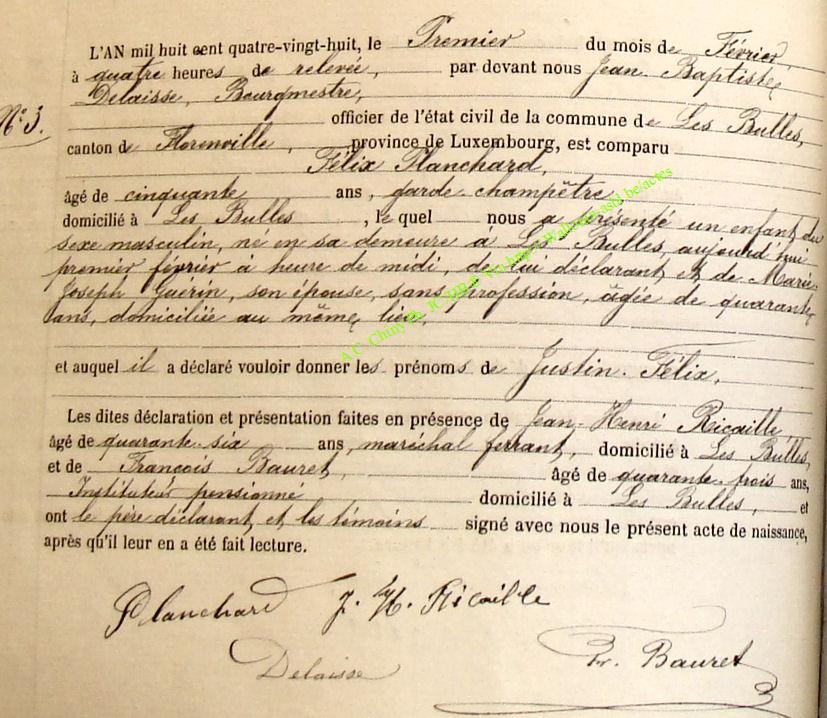 L'AN mil huit cent quatre-vingt-huit, le Premier du mois de Février,
à quatre heures de relevée, par devant nous Jean Baptiste
Delaisse, Bourgmestre,
N° 3.
officier de l'état civil de la commune de Les Bulles,
canton de Florenville, province de Luxembourg, est comparu
Félix Planchard,
âgé de cinquante ans, garde champêtre
domicilié à Les Bulles, lequel nous a présenté un enfant du
sexe masculin, né en sa demeure à Les Bulles, aujourd'hui
premier février à heure de midi, de lui déclarant et de Marie
Joseph Guerin, son épouse, sans profession, âgée de quarante
ans, domiciliée au même lieu,
et auquel il a déclaré vouloir donner les prénoms de Justin Félix.
Les dites déclaration et présentation faites en présence de Jean-Henri Ricaille,
âgé de quarante six ans, maréchal ferrant, domicilié à Les Bulles,
et de François Bauret, âgé de quarante trois ans,
Instituteur pensionné domicilié à Les Bulles, et
ont le père déclarant et les témoins signé avec nous le présent acte de naissance,
après qu'il leur en a été fait lecture.
Planchard J. H. Ricaille
Delaisse Fr. Bauret